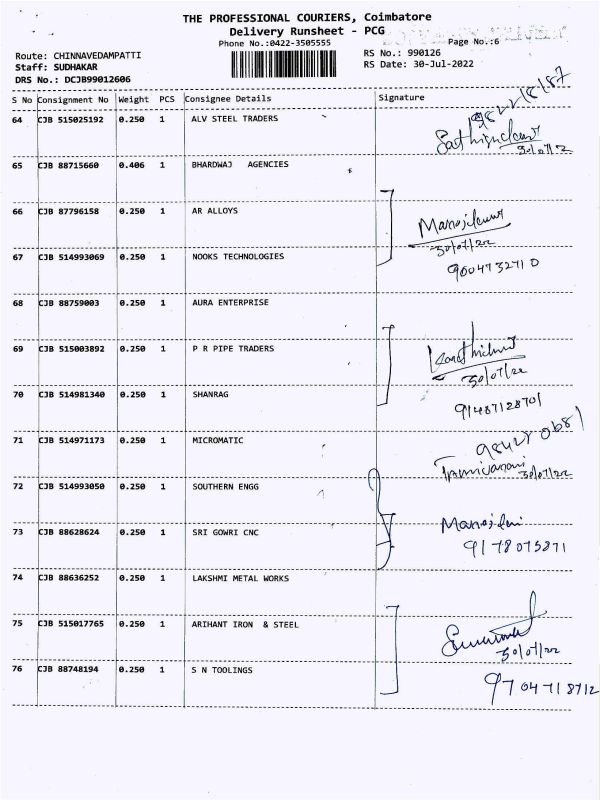 THE PROFESSIONAL COURIERS, Coimbatore
Delivery Runsheet - PCG
Phone No.:0422-3505555
Page No.:6
Route: CHINNAVEDAMPATTI
RS No.: 990126
Staff: SUDHAKAR
RS Date: 30-Jul-2022
DRS No.: DCJB99012606
S No Consignment No Weight PCS Consignee Details Signature
64 CJB 515025192 0.250 1 ALV STEEL TRADERS
65 CJB 88715660 0.406 1 BHARDWAJ AGENCIES
66 CJB 87796158 0.250 1 AR ALLOYS
30/07/22
67 CJB 514993069 0.250 1 NOOKS TECHNOLOGIES
9004732710
68 CJB 88759003 0.250 1 AURA ENTERPRISE
69 CJB 515003892 0.250 1 P R PIPE TRADERS
30/07/22
70 CJB 514981340 0.250 1 SHANRAG
91487128701
71 CJB 514971173 0.250 1 MICROMATIC
30/07/22
72 CJB 514993050 0.250 1 SOUTHERN ENGG
73 CJB 88628624 0.250 1 SRI GOWRI CNC
9178075871
74 CJB 88636252 0.250 1 LAKSHMI METAL WORKS
75 CJB 515017765 0.250 1 ARIHANT IRON & STEEL
30/07/22
76 CJB 88748194 0.250 1 S N TOOLINGS
9704718712